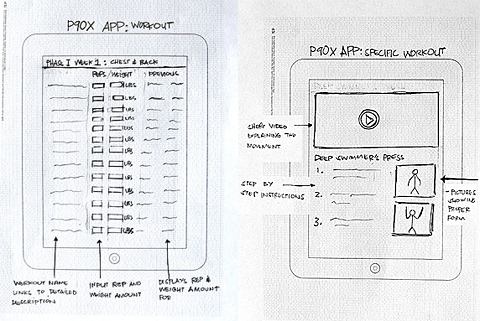 P90X APP: WORKOUT
PHASE I WEEK 1 : CHEST & BACK
REPS / WEIGHT PREVIOUS
LBS
LBS
LBS
LBS
LBS
LBS
LBS
LBS
LBS
LBS
LBS
LBS
WORKOUT NAME
LINKS TO DETAILED
DESCRIPTION
INPUT REP AND
WEIGHT AMOUNT
DISPLAYS REP &
WEIGHT AMOUNT
FOR
P90X APP: SPECIFIC WORKOUT
SHORT VIDEO
EXPLAINING THE
MOVEMENT
DEEP SWIMMER'S PRESS
1.
STEP BY
STEP INSTRUCTIONS
2.
3.
- PICTURES
SHOWING
PROPER
FORM